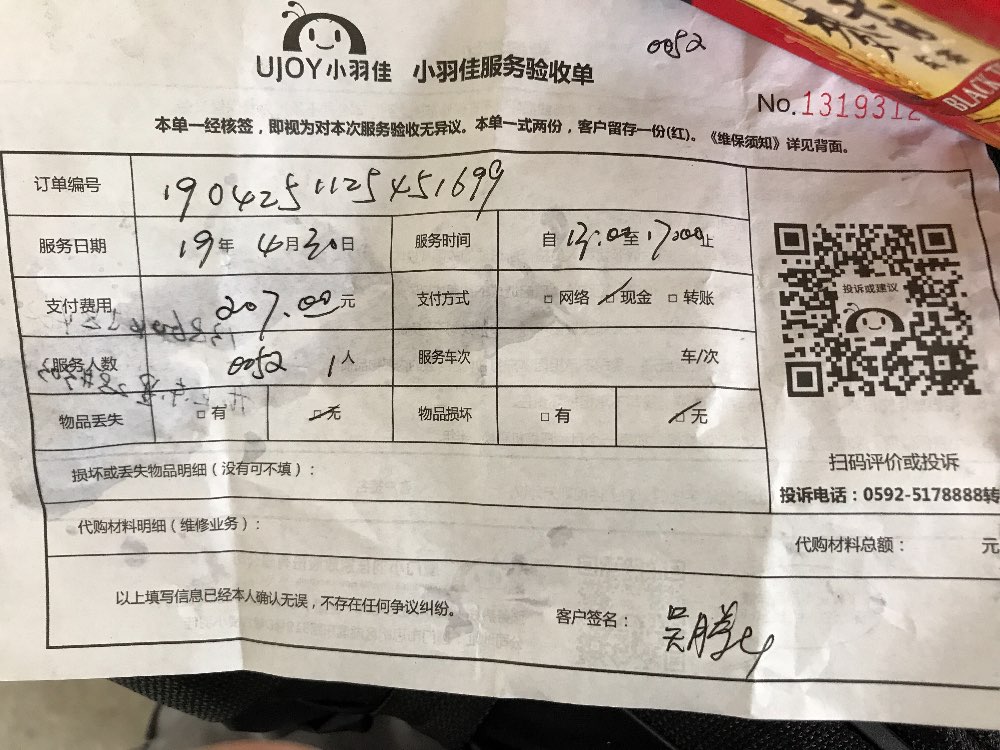 0052
UJOY小羽佳 小羽佳服务验收单
No.1319312
本单一经核签，即视为对本次服务验收无异议。本单一式两份，客户留存一份(红)。《维保须知》详见背面。
订单编号 1904251125451699
服务日期 19年 4月30日 服务时间 自13:00至17:00止
支付费用 207.00元 支付方式 □网络 □现金 □转账
服务人数 0052 1人 服务车次 车/次
物品丢失 □有 □无 物品损坏 □有 □无
投诉或建议
扫码评价或投诉
投诉电话：0592-5178888转
损坏或丢失物品明细（没有可不填）：
代购材料明细（维修业务）：
代购材料总额： 元
以上填写信息已经本人确认无误，不存在任何争议纠纷。
客户签名：
BLACK